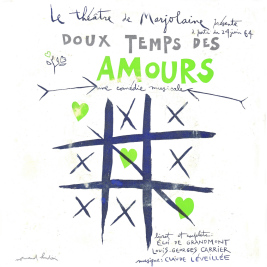 Le théâtre de Marjolaine présente
à partir du 24 juin 64
DOUX TEMPS DES
AMOURS
une comédie musicale
X X
X X
X X
livret et couplets
ÉLOI DE GRANDMONT
LOUIS-GEORGES CARRIER
musique: CLAUDE LÉVEILLÉE